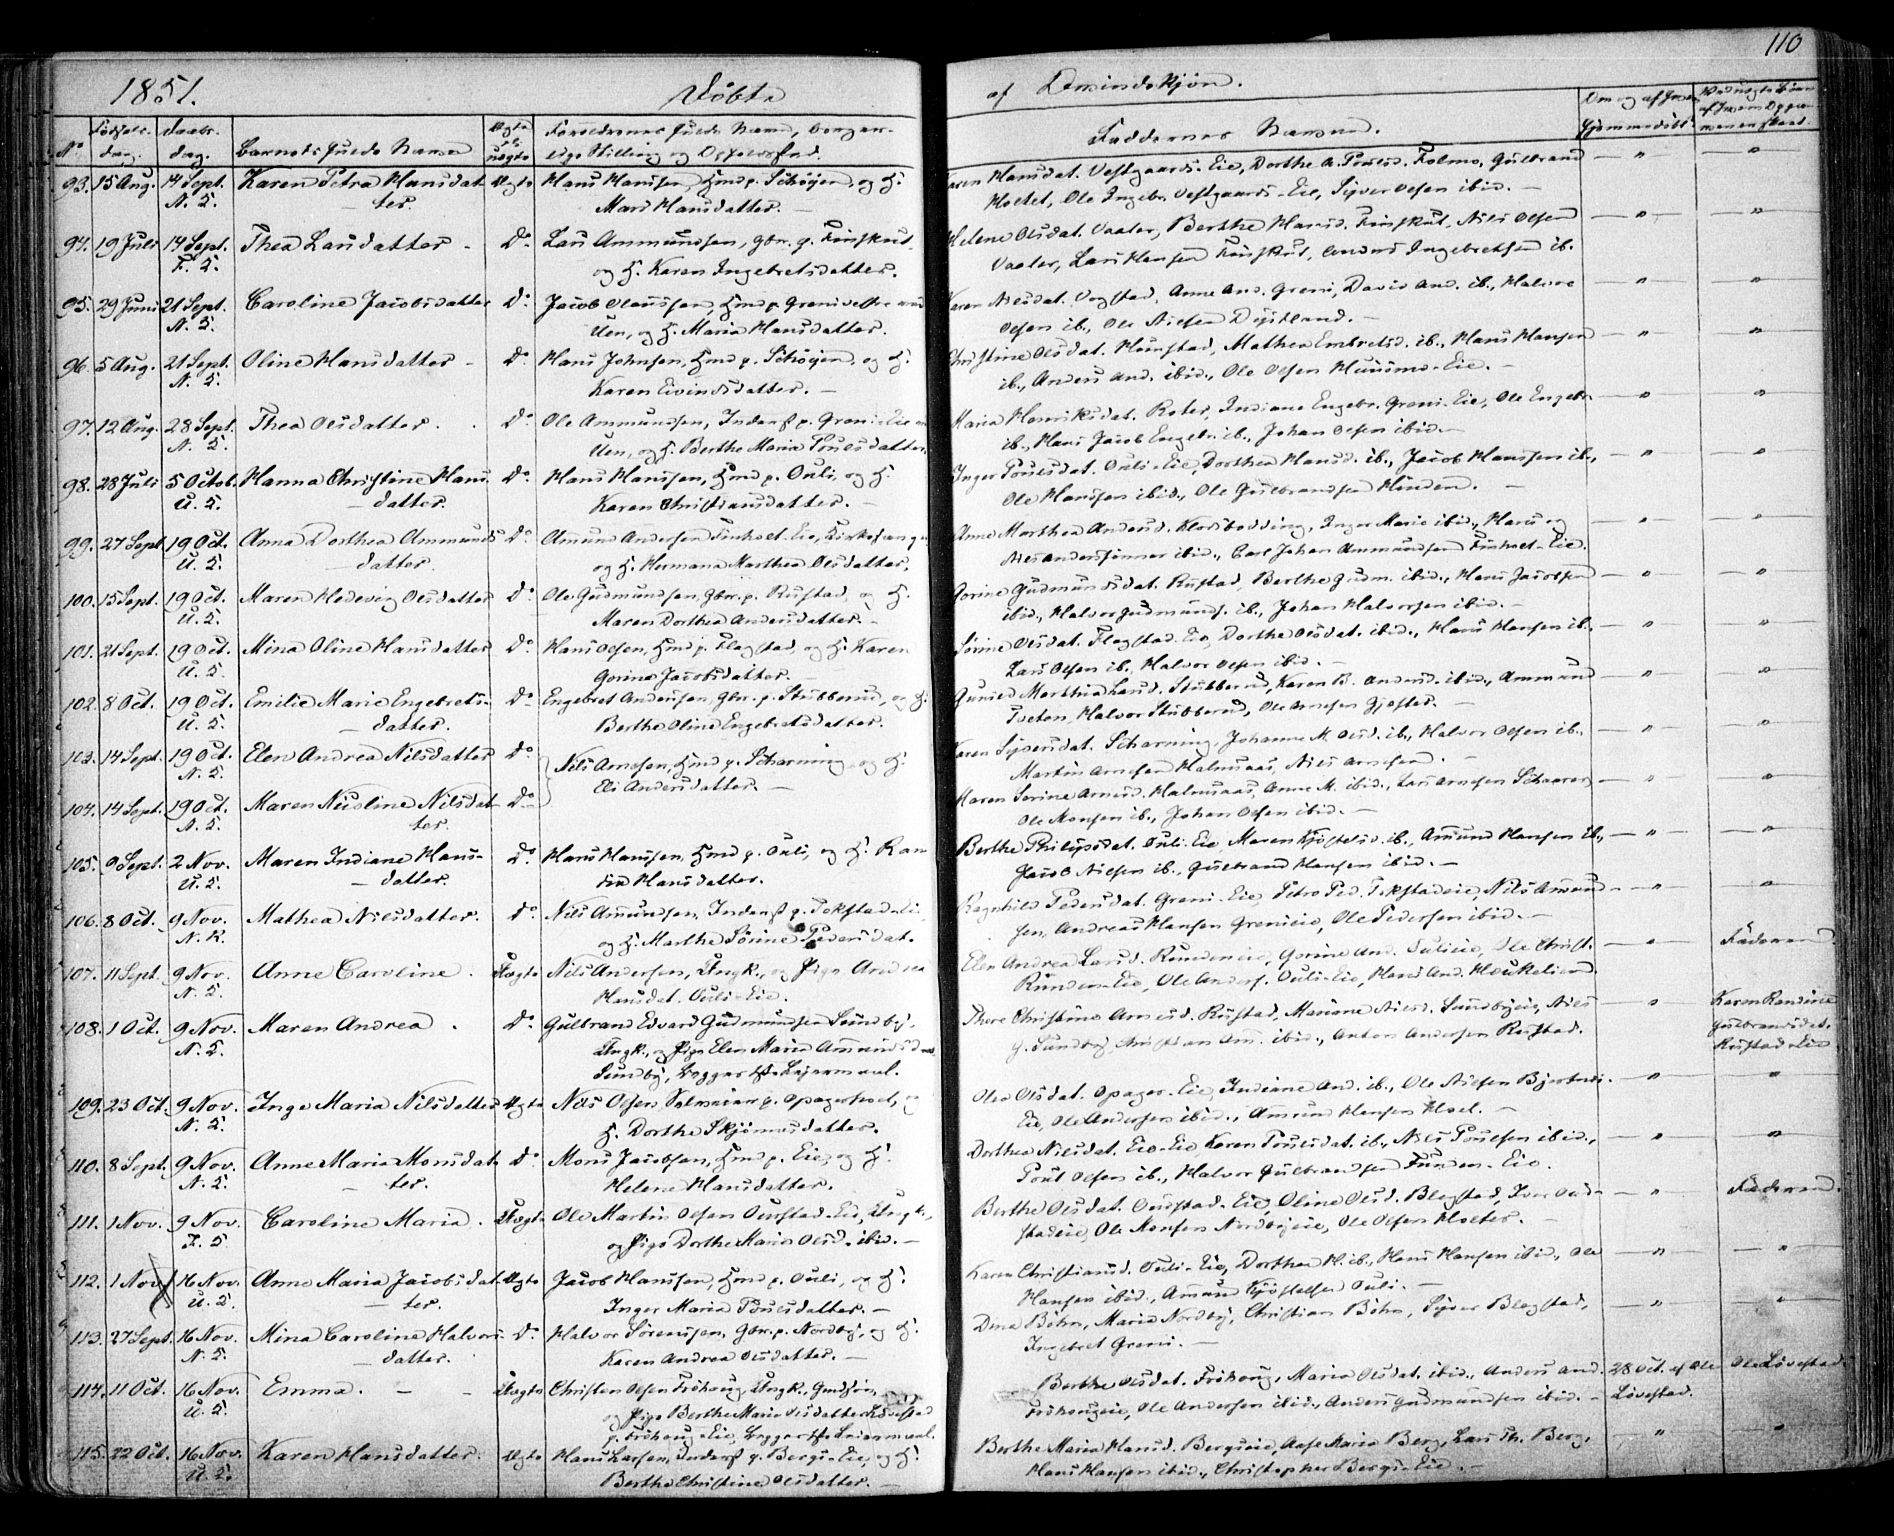 110
1851. Døbte af Qvindekjøn.
No Fødsels-dag. Daabs-dag. Barnets fulde Navn Ægte el. uægte Forældrenes fulde Navn, Borgerlige Stilling og Opholdssted. Faddernes Navne. Om og af hvem hjemmedøbt.
93. 15 Aug. 14 Sept. Karen Petra Hansdat- Ægte Hans Hanssen, Hmd p. Schøyen, og H. Karen Hansdat. Vestgaards-Eie, Dorthe A. Poulsd. Folmo, Gulbrand — " — — " —
N. S. ter. Mari Hansdatter. — Holtet, Ole Ingebr. Vestgaards-Eie, Syver Olsen ibid. —
94. 19 Juli 14 Sept. Thea Larsdatter - Do Lars Ammundsen, Gbr. p. Finskut, Helene Olsdat. Vaaler, Berthe Hansd. Finskut, Nils Olsen — " — — " —
F. S. og H. Karen Ingebretsdatter. Vaaler, Lars Hansen Finskut, Anders Ingebretsen ib.
95. 29 Juni 21 Sept. Caroline Jacobsdatter Do Jacob Olaussen, Hmd p. Grenivestre Karen Nilsdat. Vogstad, Anne And. Greni, David And. ib., Halvor — " — — " —
N. S. Uen, og H. Maria Hansdatter. Olsen ib., Ole Nilsen —
96. 5 Aug. 21 Sept. Oline Hansdatter - Do Hans Johnsen, Hmd p. Schøyen, og H. Christine Olsdat. Hunstad, Mathea Embretsd. ib., Hans Hansen — " — — " —
N. S. Karen Eivindsdatter. — ib., Anders And. ibid., Ole Olsen Huusmo-Eie. —
97. 12 Aug. 28 Sept. Thea Olsdatter. Do Ole Ammundsen, Inderst p. Greni-Eie Maria Henriksdat. Roter, Indiane Engebr. Greni-Eie, Ole Engebr. — " — — " —
N. S. Uen, og H. Berthe Maria Poulsdatter. ib., Hans Jacob Engebr. ib., Johan Olsen ibid. —
98. 28 Juli 5 Octob. Hanna Christine Hans- Do Hans Hanssen, Hmd p. Ouli, og H. Inger Poulsdat. Ouli-Eie, Dorthea Hansd. ib., Jacob Hanssen ib., — " — — " —
U. S. — datter. Karen Christiansdatter. — Ole Hansen ibid., Ole Gulbrandsen Hinden. —
99. 27 Sept. 19 Oct. Anna Dorthea Ammunds- Do Amund Andersen Finholt-Eie, Kirkesanger Anne Marthea Andersd. Klorbødding, Inger Marie ibid., Hans og — " — — " —
U. S. datter. og H. Hermana Marthea Olsdatter. Nils Anderssønner ibid., Carl Johan Ammundsen Finholt-Eie.
100. 15 Sept. 19 Oct. Maren Hedevig Olsdatter Do Ole Gudmundsen, Gbr. p. Rustad, og H. Gorine Gudmundsdat. Rustad, Berthe Gudm. ibid., Hans Jacobsen — " — — " —
U. S. Maren Dorthea Andersdatter. — ibid., Halvor Gudmunds. ib., Johan Halvorsen ibid. —
101. 21 Sept. 19 Oct. Mina Oline Hansdatter Do Hans Olsen, Hmd p. Flagstad, og H. Karen Sørine Olsdat. Flagstad-Eie, Dorthe Olsdat. ibid., Hans Hansen ib., — " — — " —
U. S. Gorine Jacobsdatter. — Lars Olsen ib., Halvor Olsen ibid. —
102. 8 Oct. 19 Oct. Emilie Marie Engebrets- Do Engebret Andersen, Gbr. p. Stubberud, og H. Gunild Marthia Larsd. Stubberud, Karen B. Andersd. ibid., Ammund — " — — " —
U. S. — datter. Berthe Oline Engebretsdatter. Tveten, Halvor Stubberud, Ole Arnesen Gjester. —
103. 14 Sept. 19 Oct. Elen Andrea Nilsdatter Do Nils Arnesen, Hmd p. Scharning, og H. Karen Syversdat. Scharning, Johanne M. Olsd. ib., Halvor Olsen ib., — " — — " —
N. S. Eli Andersdatter. — Martin Arnesen Halmsaas, Nils Arnesen. —
104. 14 Sept. 19 Oct. Maren Nicoline Nilsdat- Do Karen Serine Arnesd. Halmsaas, Anne M. ibid., Lars Arnesen Schaarer, — " — — " —
N. S. ter. Ole Monsen ib., Johan Olsen ibid. —
105. 9 Sept. 2 Nov. Maren Indiane Hans- Do Hans Hansen, Hmd p. Ouli, og H. Ran- Berthe Philipsdat. Ouli-Eie, Maren Kjøstelsd. ib., Amund Hansen ib., — " — — " —
U. S. — datter. Hansdatter. Jacob Nilsen ib., Gulbrand Hansen ibid. —
106. 8 Oct. 9 Nov. Mathea Nilsdatter. Do Nils Amundsen, Inderst p. Tokstad-Eie, Ragnhild Pedersdat. Greni-Eie, Petro Ped. Tokstadeie, Nils Amund- — " — — " —
N. K. og H. Marthe Sørine Pedersdat. sen, Andreas Hansen Grenieie, Ole Pedersen ibid. —
107. 11 Sept. 9 Nov. Anne Caroline. Uægte Nils Andersen, Ungk., og Pige Andrea Elen Andrea Larsd. Rundeneie, Gorine And. Oulieie, Ole Christ. — " — Faderen.
N. S. Hansdat. Ouli-Eie. Runden-Eie, Ole Anders. Ouli-Eie, Hans And. Houkelien.
108. 1 Oct. 9 Nov. Maren Andrea. Do Gulbrand Edvard Gudmundsen Sundby, Thore Christine Arnesd. Rustad, Mariane Nilsd. Sundbyeie, Nils — " — Karen Randine
N. S. Ungk., og Pige Elen Maria Amundsd. G. Sundby, Christian Am. ibid., Anton Andersen Rustad. Gulbrandsdat.
Sundby, begges 1ste Leiermaal. Rustad-Eie
109. 23 Oct. 9 Nov. Inge Maria Nilsdatter Ægte Nils Olsen, Selveier p. Opagerholt, og Olea Olsdat. Opager-Eie, Indiane And. ib., Ole Nilsen Bjertnes- — " — — " —
N. S. H. Dorthe Skjønnesdatter. Eie, Ole Andersen ibid., Amund Hansen Hoel. —
110. 8 Sept. 9 Nov. Anne Maria Monsdat- Do Mons Jacobsen, Hmd p. Eie, og H. Dorthea Nilsdat. Eie-Eie, Karen Poulsdat. ib., Nils Poulsen ibid., — " — — " —
N. S. — ter. Helene Hansdatter. Poul Olsen ib., Halvor Gulbrandsen Funden-Eie.
111. 1 Nov. 9 Nov. Caroline Maria. Uægte Ole Martin Olsen Ourstad-Eie, Ungk., Berthe Olsdat. Ourstad-Eie, Oline Olsd. Blegstad, Iver Our- — " — Faderen.
F. S. og Pige Dorthe Maria Olsd. ibid. — stadeie, Ole Monsen Nordbyeie, Ole Olsen Holter. —
112. 1 Nov. 16 Nov. Anne Maria Jacobsdat- Ægte Jacob Hanssen, Hmd p. Ouli, og H. Karen Christiansd. Ouli-Eie, Dorthea H. ib., Hans Hansen ibid., Ole — " — — " —
U. S. — ter. Inger Maria Poulsdatter. — Hansen ibid., Amund Kjøstelsen Ouli. —
113. 27 Sept. 16 Nov. Mina Caroline Halvors- Do Halvor Sørensen, Gbr. p. Nordby, og H. Dina Bøhn, Maria Nordby, Christian Bøhn, Syver Blegstad, — " — — " —
N. S. — datter. Karen Andrea Olsdatter. — Ingebret Greni. —
114. 11 Oct. 16 Nov. Emma. — - Uægte Christen Olsen Frøhoug, Ungk., Berthe Olsdat. Frøhoug, Maria Olsdat. ibid., Anders And. 28 Oct. af Ole Ole Løvestad.
U. S. og Pige Berthe Maria Olsdatter Løvestad Frøhougeie, Ole Andersen ibid., Anders Gudmundsen ibid. - Løvestad.
p. Frøhoug-Eie, begges 1ste Leiermaal.
115. 22 Oct. 16 Nov. Karen Hansdatter. Ægte Hans Larsen, Inderst p. Bergs-Eie, og H. Berthe Maria Hansd. Bergseie, Aase Maria Berg, Lars Th. Berg, — " — — " —
U. S. Berthe Christine Olsdatter. — Hans Hansen ibid., Christopher Bergs-Eie. —